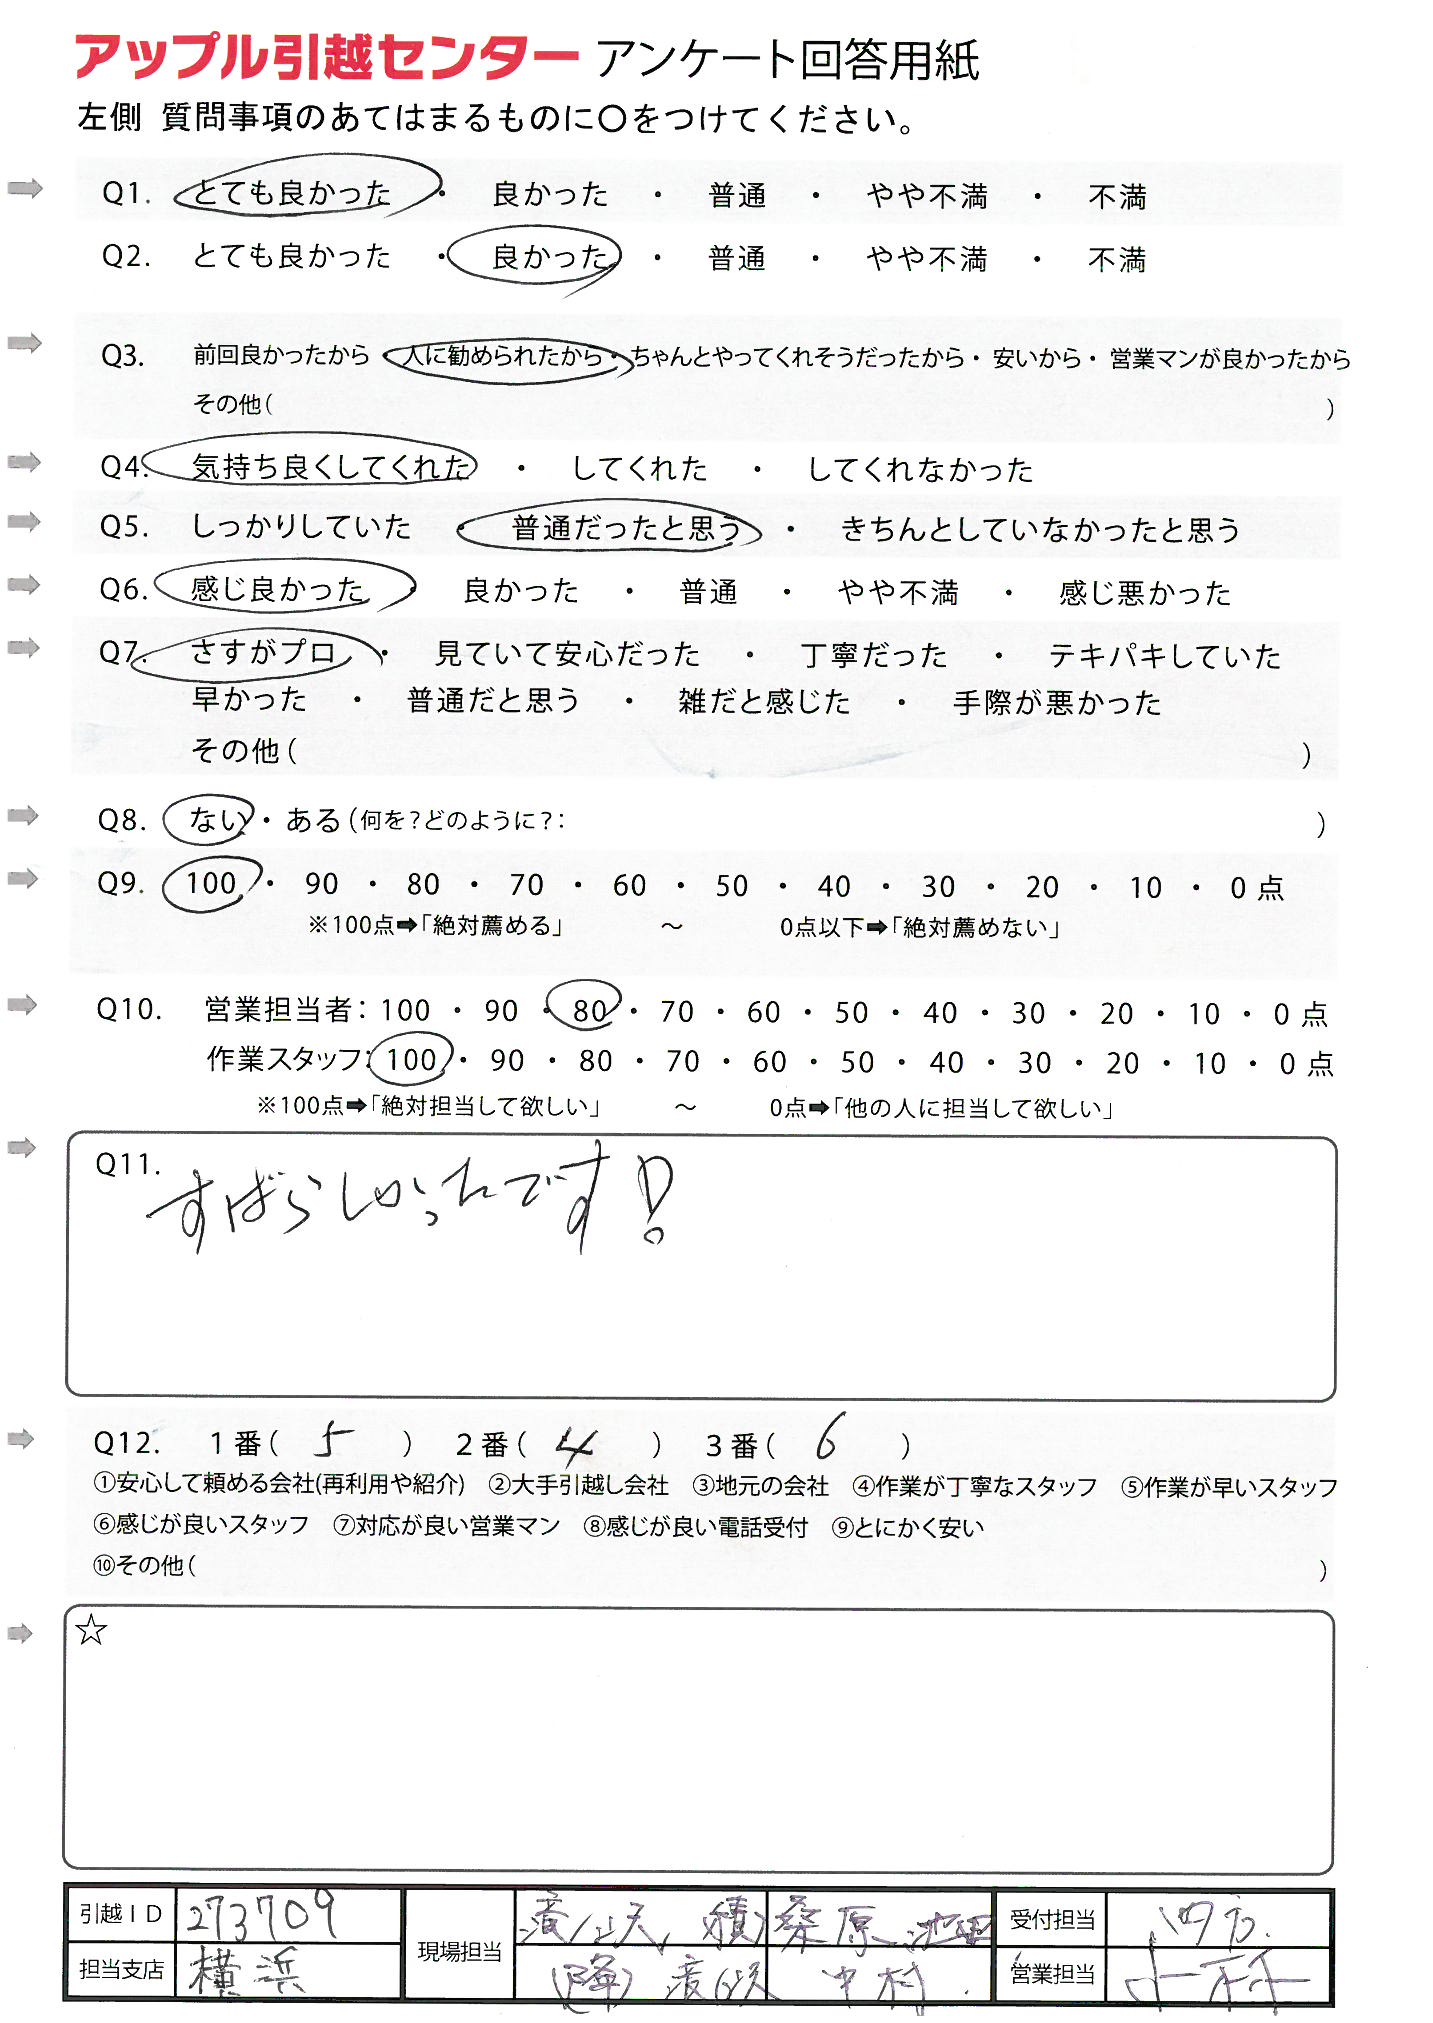 アップル引越センター アンケート回答用紙
左側 質問事項のあてはまるものに○をつけてください。
Q1. とても良かった ・ 良かった ・ 普通 ・ やや不満 ・ 不満
Q2. とても良かった ・ 良かった ・ 普通 ・ やや不満 ・ 不満
Q3. 前回良かったから ・ 人に勧められたから ・ ちゃんとやってくれそうだったから ・ 安いから ・ 営業マンが良かったから
その他( )
Q4. 気持ち良くしてくれた ・ してくれた ・ してくれなかった
Q5. しっかりしていた ・ 普通だったと思う ・ きちんとしていなかったと思う
Q6. 感じ良かった ・ 良かった ・ 普通 ・ やや不満 ・ 感じ悪かった
Q7. さすがプロ ・ 見ていて安心だった ・ 丁寧だった ・ テキパキしていた
早かった ・ 普通だと思う ・ 雑だと感じた ・ 手際が悪かった
その他( )
Q8. ない ・ ある(何を?どのように?: )
Q9. 100 ・ 90 ・ 80 ・ 70 ・ 60 ・ 50 ・ 40 ・ 30 ・ 20 ・ 10 ・ 0 点
※100点➡「絶対薦める」 ～ 0点以下➡「絶対薦めない」
Q10. 営業担当者: 100 ・ 90 ・ 80 ・ 70 ・ 60 ・ 50 ・ 40 ・ 30 ・ 20 ・ 10 ・ 0 点
作業スタッフ: 100 ・ 90 ・ 80 ・ 70 ・ 60 ・ 50 ・ 40 ・ 30 ・ 20 ・ 10 ・ 0 点
※100点➡「絶対担当して欲しい」 ～ 0点➡「他の人に担当して欲しい」
Q11.
すばらしかったです!
Q12. 1番( 5 ) 2番( 4 ) 3番( 6 )
①安心して頼める会社(再利用や紹介) ②大手引越し会社 ③地元の会社 ④作業が丁寧なスタッフ ⑤作業が早いスタッフ
⑥感じが良いスタッフ ⑦対応が良い営業マン ⑧感じが良い電話受付 ⑨とにかく安い
⑩その他( )
☆
引越ID 273709 現場担当 (積) 桑原 池田 受付担当
担当支店 横浜 (降) 中村 営業担当